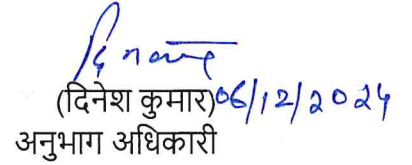 (दिनेश कुमार) 06/12/2024
अनुभाग अधिकारी